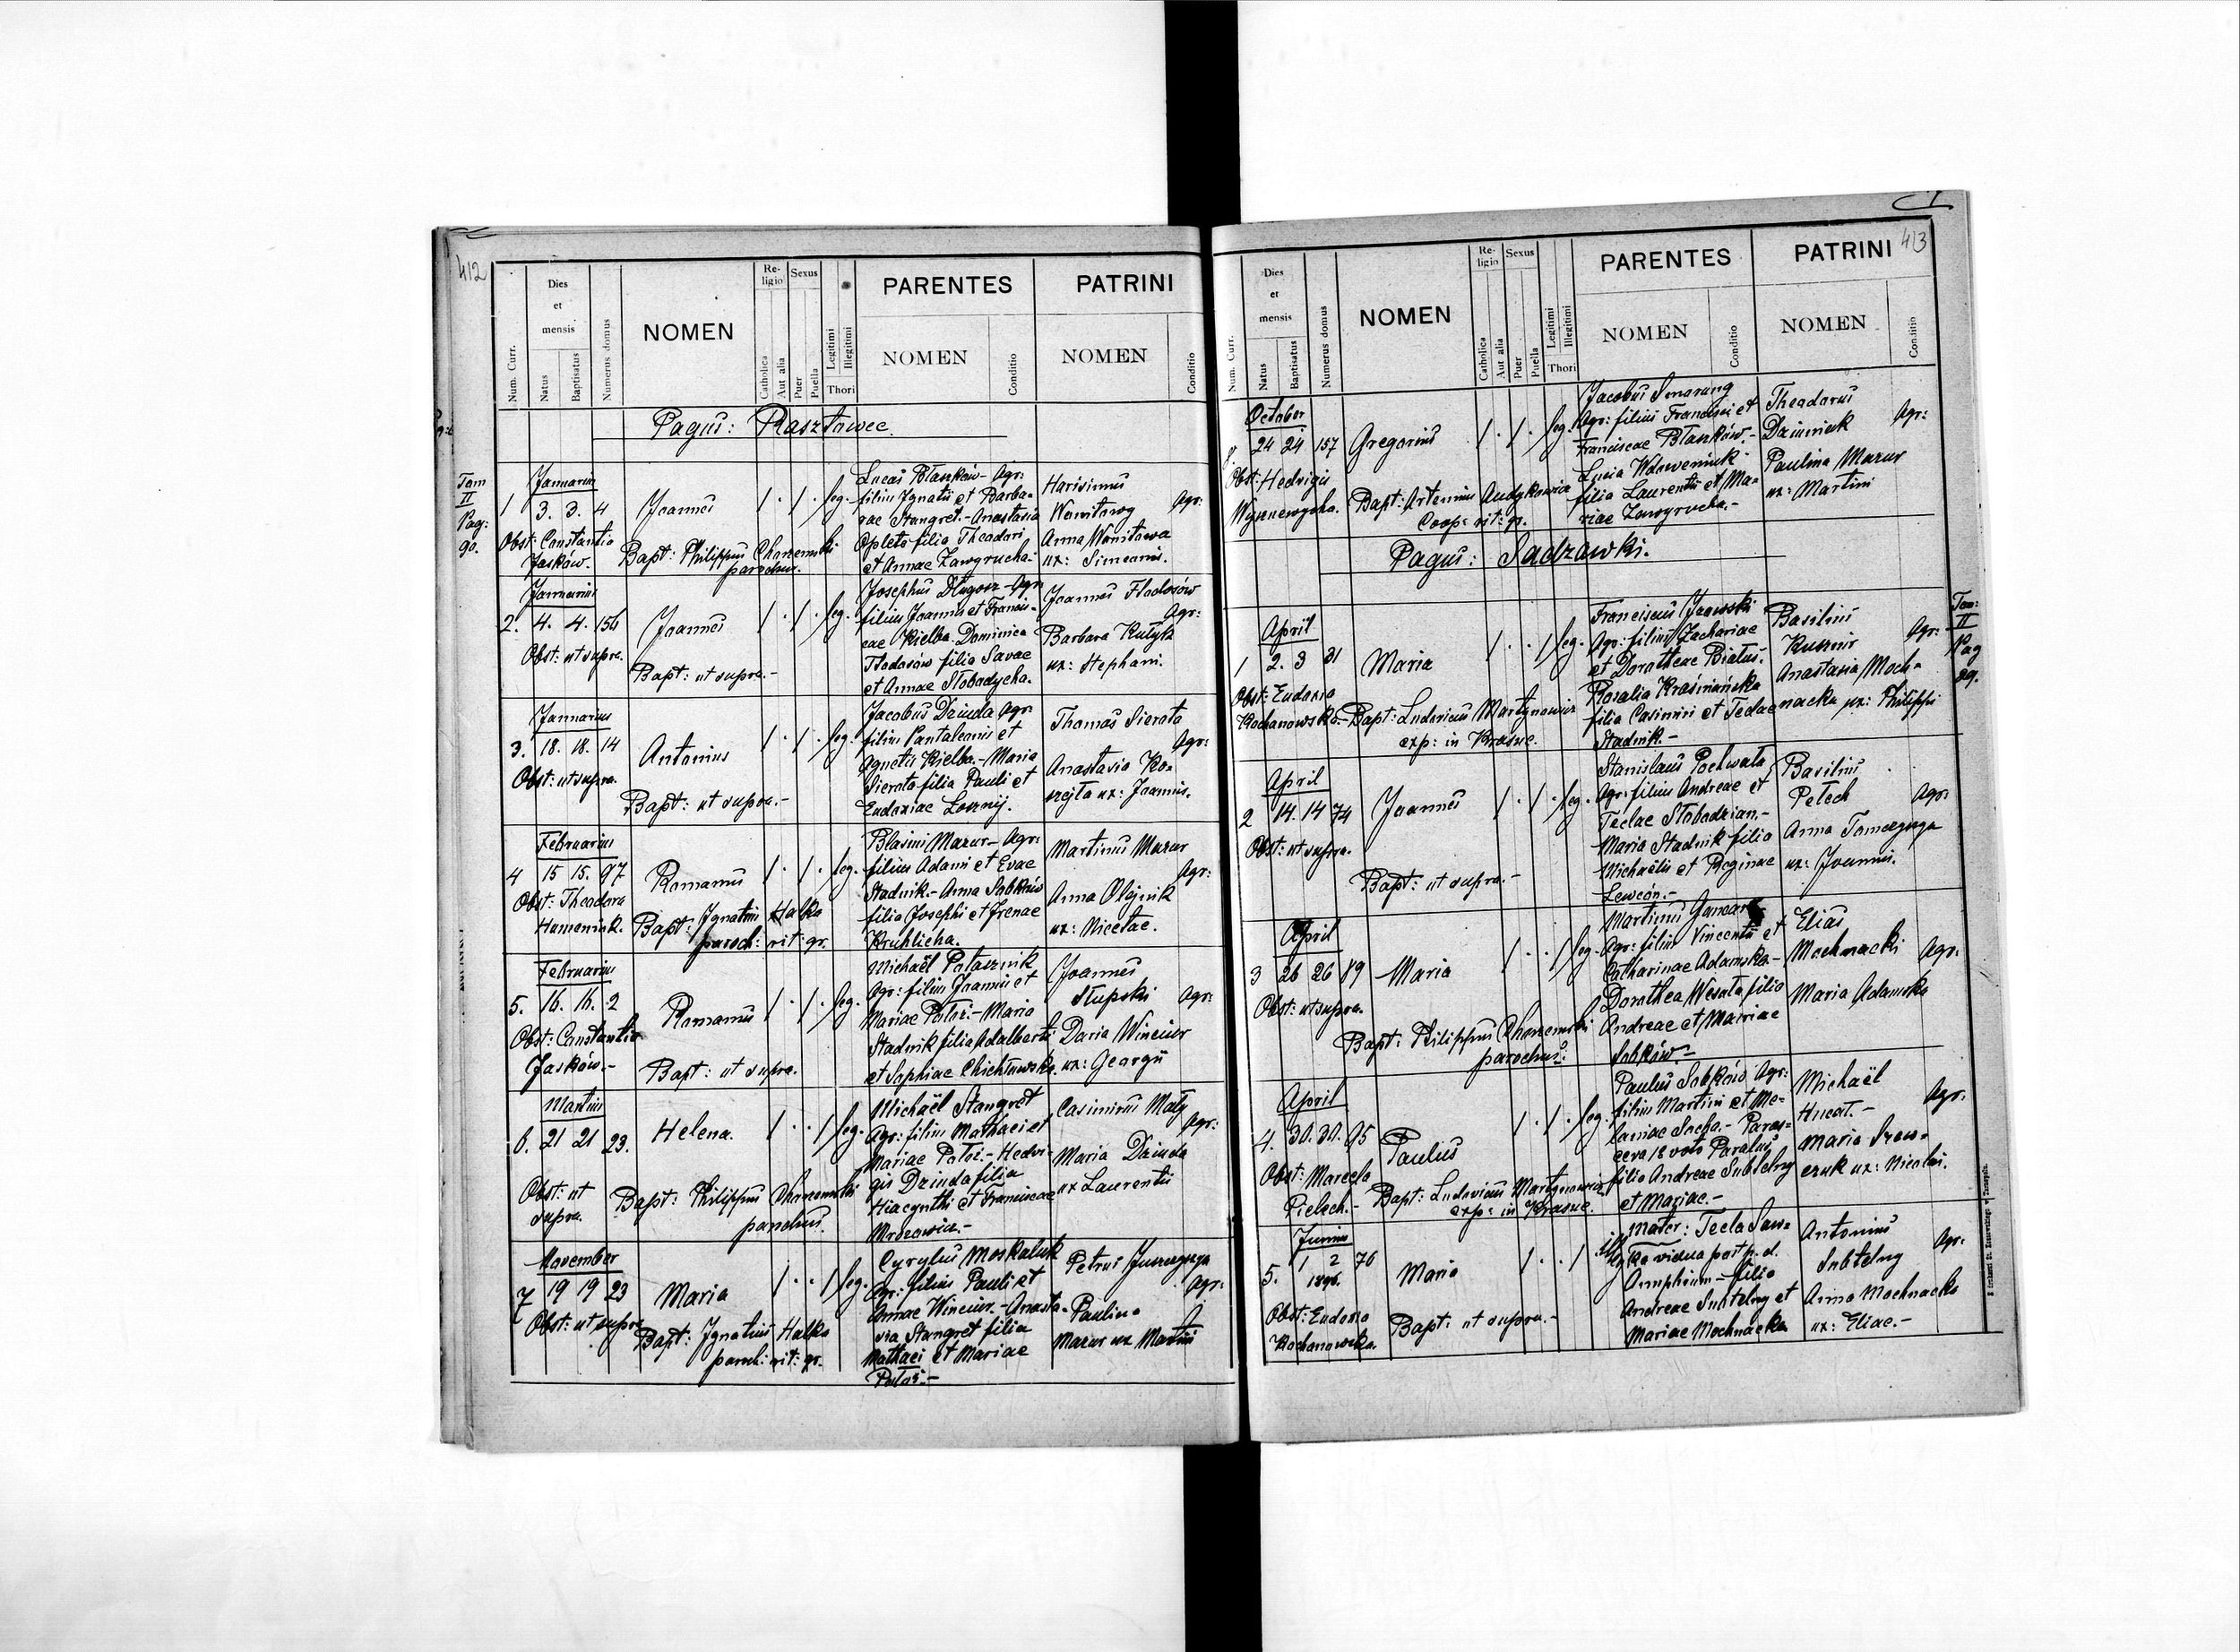 412
Num. Curr.
Dies
et
mensis
Natus
Baptisatus
Numerus domus
NOMEN
Re-
ligio
Catholica
Aut alia
Sexus
Puer
Puella
Legitimi
Illegitimi
Thori
PARENTES
NOMEN
Conditio
PATRINI
NOMEN
Conditio
Pagus: Rasztowce.
Tom
II
Pag:
90.
Januarius
1 3. 3. 4
Obst: Constantia
Jasków.
Joannes
Bapt: Philippus Chorzemski
parochus.
leg.
Lucas Błaszków - Agr:
filius Ignatii et Barba-
rae Stangret.- Anastasia
Opleta filia Theodori
et Annae Zawyrucha.
Harisimus
Womitowy Agr:
Anna Womitowa
ux: Simeonis.
Januarius
2. 4. 4. 156
Obst: ut supra.
Joannes
Bapt: ut supra.-
leg.
Josephus Długosz - Agr:
filius Joannis et Francis-
cae Kielba. Dominica
Fedosów filia Savae
et Annae Słobodycha.
Joannes Fedosów
Agr:
Barbara Kułyk
ux: Stephani.
Januarius
3. 18. 18. 14
Obst: ut supra.
Antonius
Bapt: ut supra.-
leg.
Jacobus Dziuda Agr:
filius Pantaleonis et
Agnetis Kielba.- Maria
Sierota filia Pauli et
Eudoxiae Łosznij.
Thomas Sierota
Agr:
Anastasia Ko-
szejta ux: Joannis.
Februarius
4 15 15. 97
Obst: Theodora
Humeniuk.
Romanus
Bapt: Ignatius Halka
paroch: rit: gr.
leg.
Blasius Mazur - Agr:
filius Adami et Evae
Stadnik.- Anna Sobków
filia Josephi et Irenae
Kruhlicha.
Martinus Mazur
Agr:
Anna Olejnik
ux: Nicetae.
Februarius
5. 16. 16. 2
Obst: Constantia
Jasków.-
Romanus
Bapt: ut supra.
leg.
Michaël Potasznik
Agr: filius Joannis et
Mariae Patoż.- Maria
Stadnik filia Adalberti
et Sophiae Chichłowska.
Joannes
Słupski Agr:
Daria Winciur
ux: Georgii
Martius
6. 21 21 23.
Obst: ut
supra.
Helena.
Bapt: Philippus Chorzemski
parochus.
leg.
Michaël Stangret
Agr: filius Mathaei et
Mariae Patoż.- Hedvi-
gis Dziuda filia
Hiacynthi et Franciscae
Mrozowicz.-
Casimirus Mały
Agr:
Maria Dziuda
ux Laurentii
November
7 19 19 23
Obst: ut supra
Maria
Bapt: Ignatius Halka
paroch: rit: gr.
leg.
Cyrylus Moskaluk
Agr: filius Pauli et
Annae Winciur.- Anasta-
sia Stangret filia
Mathaei et Mariae
Patoż.-
Petrus Juszczyszyn
Agr:
Paulina
Mazur ux Martini
413
Num. Curr.
Dies
et
mensis
Natus
Baptisatus
Numerus domus
NOMEN
Re-
ligio
Catholica
Aut alia
Sexus
Puer
Puella
Legitimi
Illegitimi
Thori
PARENTES
NOMEN
Conditio
PATRINI
NOMEN
Conditio
October
8 24 24 157
Obst: Hedvigis
Gregorius
Bapt: Artemius
Coop: rit: gr.
leg.
Jacobus Smarung
Agr: filius Francisci et
Franciscae Błaszków.-
Lucia Wdoweniuk
filia Laurentii et Ma-
riae Zawyrucha.-
Theodorus
Dziuniak Agr:
Paulina Mazur
ux: Martini
Pagus: Sadzawki.
Tom:
II
Pag
89.
April
1 2. 3 31
Obst: Eudoxia
Kochanowska.-
Maria
Bapt: Ludovicus Martynowicz
exp: in Krasne.
leg.
Franciscus Jzowski
Agr: filius Zachariae
et Dorotheae Białuś.
Rosalia Kraśniańska
filia Casimiri et Teclae
Stadnik.-
Basilius
Kusznir Agr:
Anastasia Moch-
nacka ux: Philippi
April
2 14. 14 74
Obst: ut supra.
Joannes
Bapt: ut supra.-
leg.
Stanislaus Pochwała
Agr: filius Andreae et
Teclae Słobodzian.-
Maria Stadnik filia
Michaëlis et Reginae
Lewcón.-
Basilius
Petech Agr:
Anna Tomczyszyn
ux: Joannis.
April
3 26 26 89
Obst: ut supra.
Maria
Bapt: Philippus Chorzemski
parochus.
leg.
Martinus Gancarz
Agr: filius Vincentii et
Catharinae Adamska.-
Dorothea Wesota filia
Andreae et Mariae
Sobków.-
Elias
Mochnacki Agr:
Maria Adamska
April
4. 30. 30. 95
Obst: Marcela
Pielech.-
Paulus
Bapt: Ludovicus Martynowicz
exp: in Krasne.
leg.
Paulus Sobków Agr:
filius Martini et Me-
laniae Socha.- Paras-
ceva 1º voto Paraluś
filia Andreae Subtelny
et Mariae.-
Michaël
Hncat.- Agr:
Maria Szew-
czuk ux: Nicolai.
Junius
5. 1 2 76
1896.
Obst: Eudoxia
Kochanowska.
Maria
Bapt: ut supra.-
Mater: Tecla Saw-
ka vidua post p. d.
Amphium - filia
Andreae Subtelny et
Mariae Mochnacka
Antonius
Subtelny Agr:
Anna Mochnacka
ux: Eliae.-